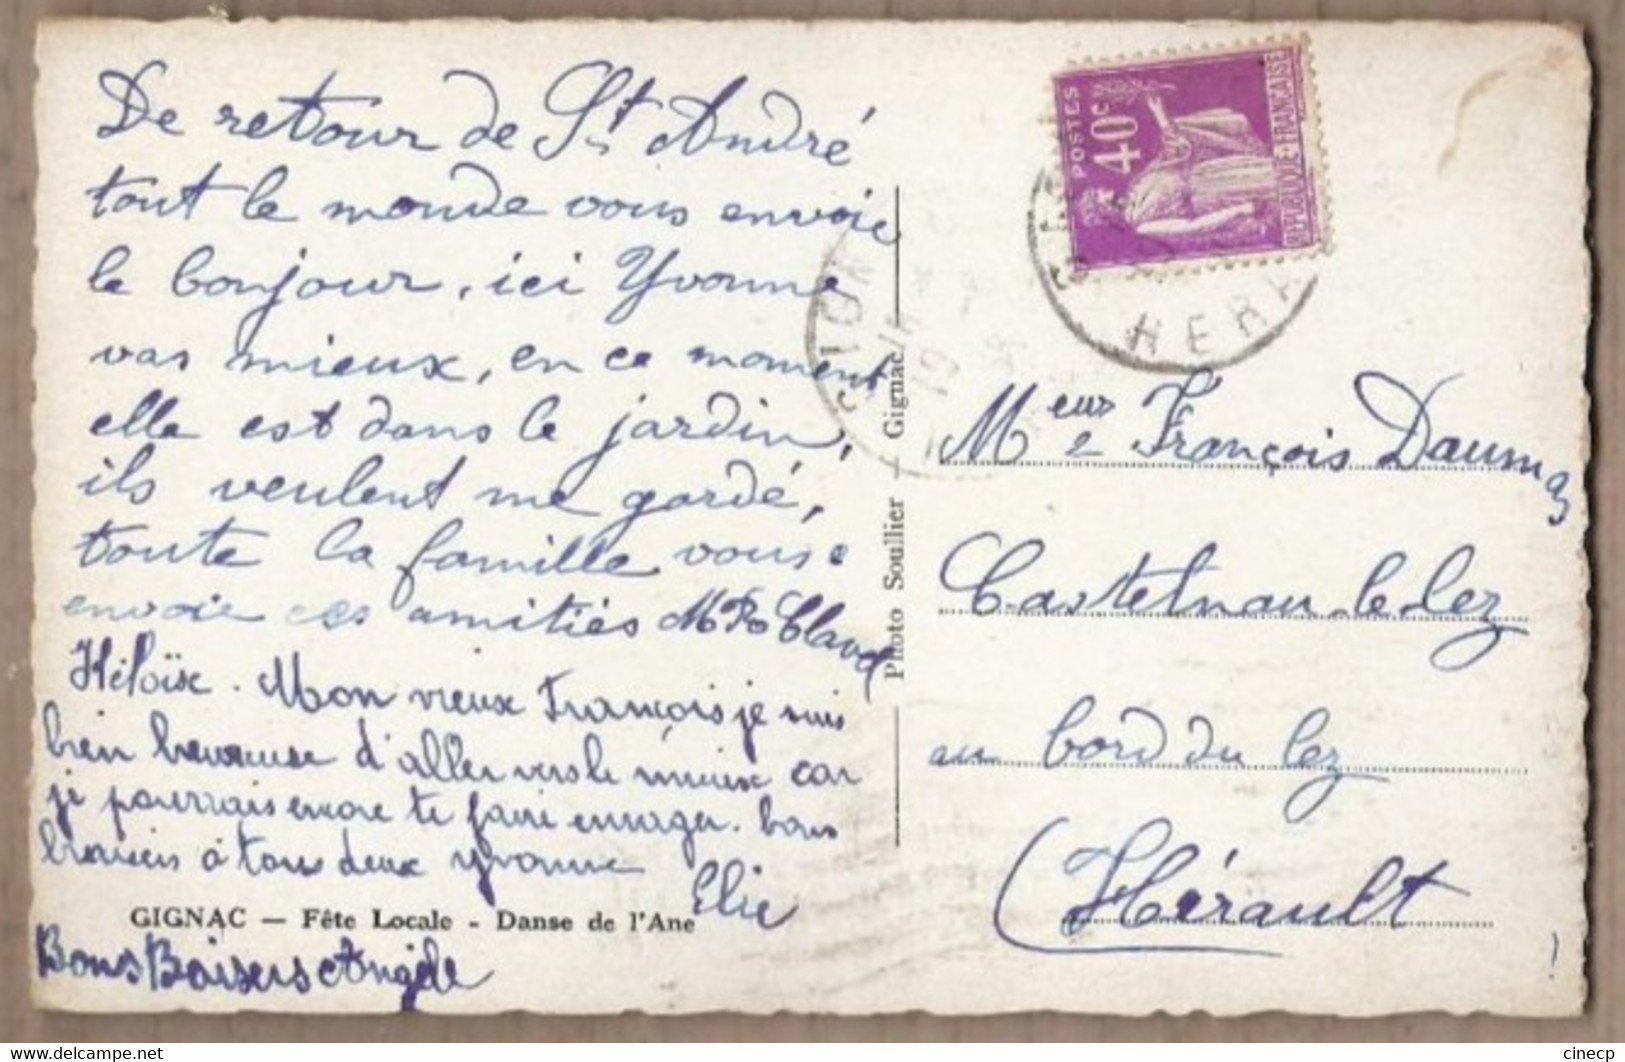 De retour de St André
tout le monde vous envoie
le bonjour, ici Yvonne
vas mieux, en ce moment
elle est dans le jardin,
ils veulent me gardé,
toute la famille vous
envoie ces amitiés M
Héloïse. Mon vieux François je suis
bien heureuse d'aller vers le mieux car
je pourrais encore te faire enrager. bons
baisers à tous deux Yvonne
Elie
GIGNAC — Fête Locale - Danse de l'Ane
Bons Baisers Angèle
Photo Soullier — Gignac
POSTES
40c
REPUBLIQUE FRANCAISE
HERA
GIGN
19
Meur François Daumas
Castelnau-le-lez
au bord du lez
(Hérault
cinecp